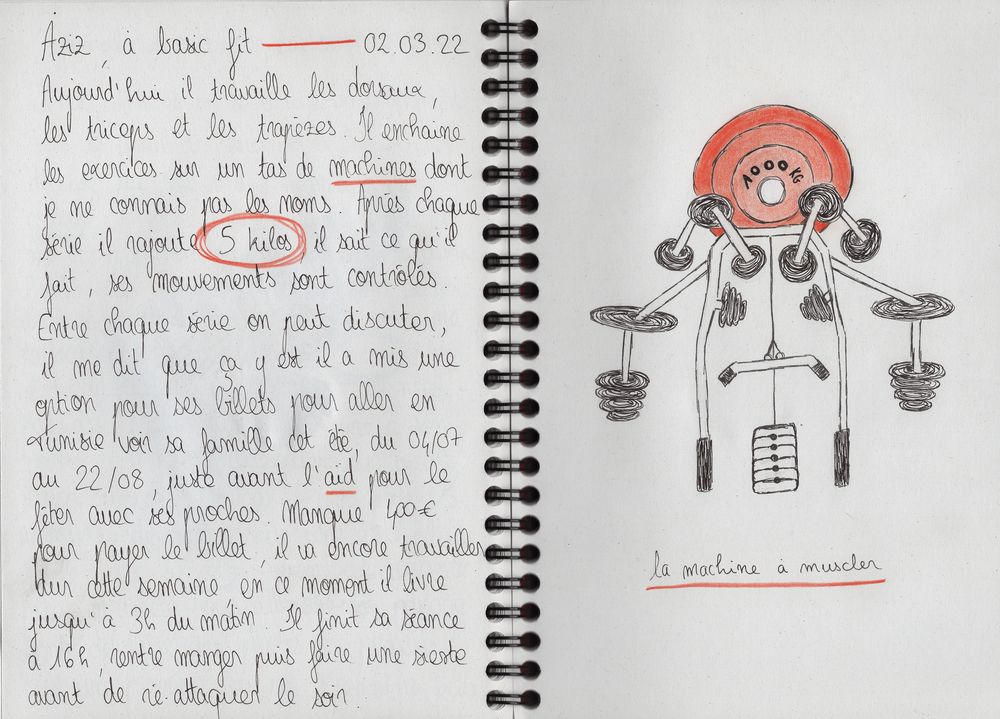 Aziz, à basic fit — 02.03.22
Aujourd'hui il travaille les dorsaux,
les triceps et les trapèzes. Il enchaine
les exercices sur un tas de machines dont
je ne connais pas les noms. Après chaque
série il rajoute 5 kilos, il sait ce qu'il
fait, ses mouvements sont contrôlés.
Entre chaque série on peut discuter,
il me dit que ça y est il a mis une
option pour ses billets pour aller en
Tunisie voir sa famille cet été, du 04/07
au 22/08, juste avant l'aid pour le
fêter avec ses proches. Manque 400€
pour payer le billet, il va encore travailler
dur cette semaine en ce moment il livre
jusqu'à 3h du matin. Il finit sa séance
à 16h, rentre manger puis faire une sieste
avant de ré-attaquer le soir.
1000 KG
la machine à muscler